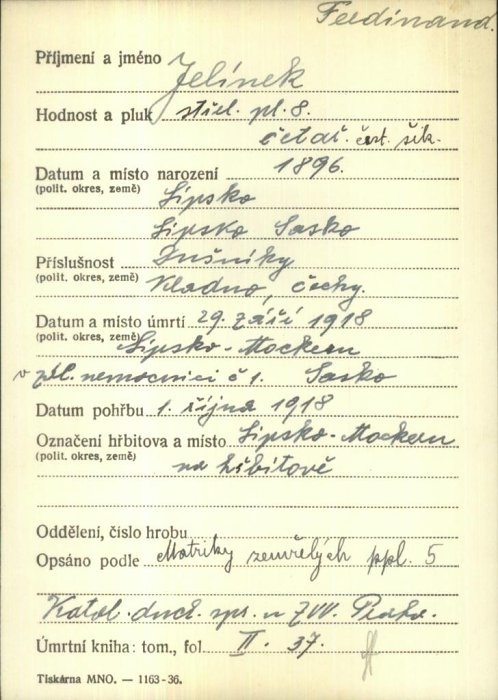 Ferdinand.
Příjmení a jméno Jelínek
Hodnost a pluk střel. pl. 8.
četař. čest. šik.
Datum a místo narození 1896.
(polit. okres, země) Lipsko
Lipsko Sasko
Příslušnost Dušníky
(polit. okres, země) Kladno, Čechy.
Datum a místo úmrtí 29. září 1918
(polit. okres, země) Lipsko-Mockern
v zál. nemocnici č 1. Sasko
Datum pohřbu 1. října 1918
Označení hřbitova a místo Lipsko-Mockern
(polit. okres, země) na hřbitově
Oddělení, číslo hrobu
Opsáno podle Matriky zemřelých ppl. 5
Katol. duch. spr. u ZVV. Praha.
Úmrtní kniha: tom., fol II. 37.
Tiskárna MNO. — 1163-36.